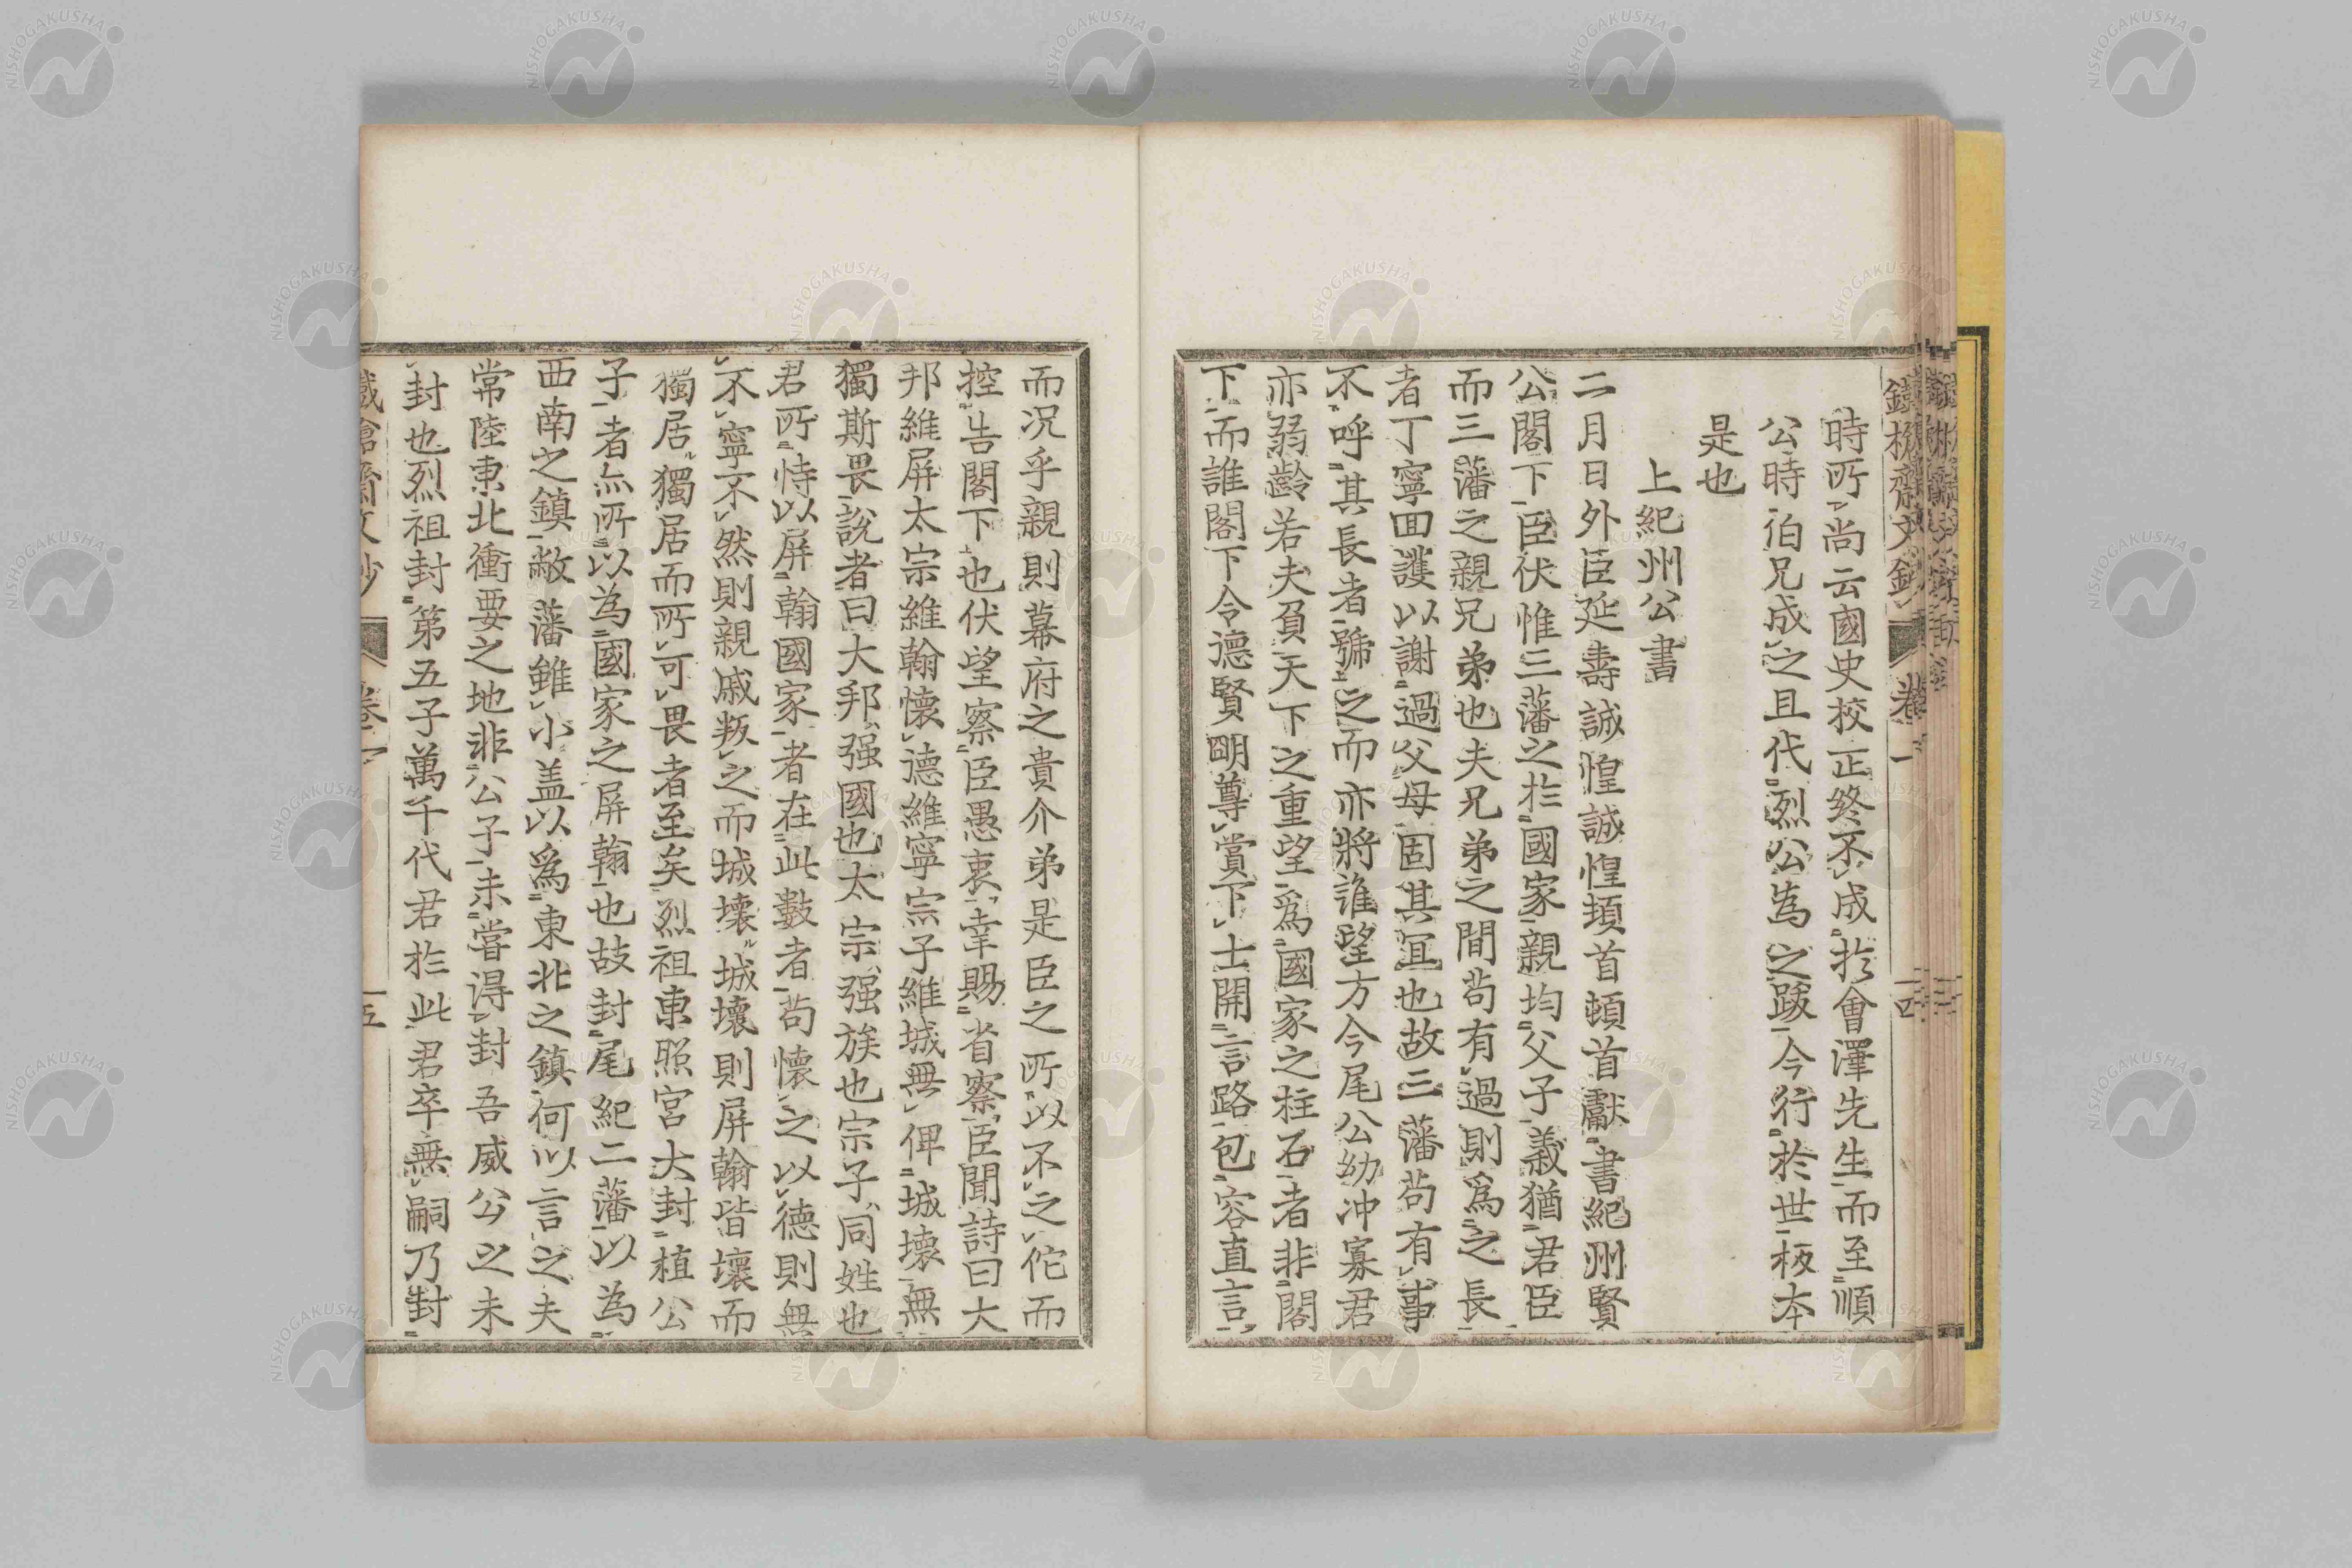 時所尚云國史校正終不成於會澤先生而至順
公時伯兄成之且代烈公為之跋今行於世板本
是也
上紀州公書
二月日外臣延壽誠惶誠惶頓首頓首獻書紀州賢
公閣下臣伏惟三藩之於國家親均父子義猶君臣
而三藩之親兄弟也夫兄弟之間苟有過則爲之長
者丁寧回護以謝過父母固其冝也故三藩苟有事
不呼其長者號之而亦將誰望方今尾公幼冲寡君
亦弱齡若夫負天下之重望爲國家之柱石者非閣
下而誰閣下令德賢明尊賞下士開言路包容直言
而況乎親則幕府之貴介弟是臣之所以不之佗而
控告閣下也伏望察臣愚衷幸賜省察臣聞詩曰大
邦維屏太宗維翰懷德維寧宗子維城無俾城壞無
獨斯畏說者曰大邦强國也太宗强族也宗子同姓也
君所恃以屏翰國家者在此數者苟懷之以德則無
不寧不然則親戚叛之而城壞城壞則屏翰皆壞而
獨居獨居而所可畏者至矣烈祖東照宮大封植公
子者亦所以為國家之屏翰也故封尾紀二藩以為
西南之鎮敝藩雖小盖以爲東北之鎮何以言之夫
常陸東北衝要之地非公子未嘗得封吾威公之未
封也烈祖封第五子萬千代君於此君卒無嗣乃封
鐵槍齋文鈔 卷一 十四
鐵槍齋文鈔 卷一 十五